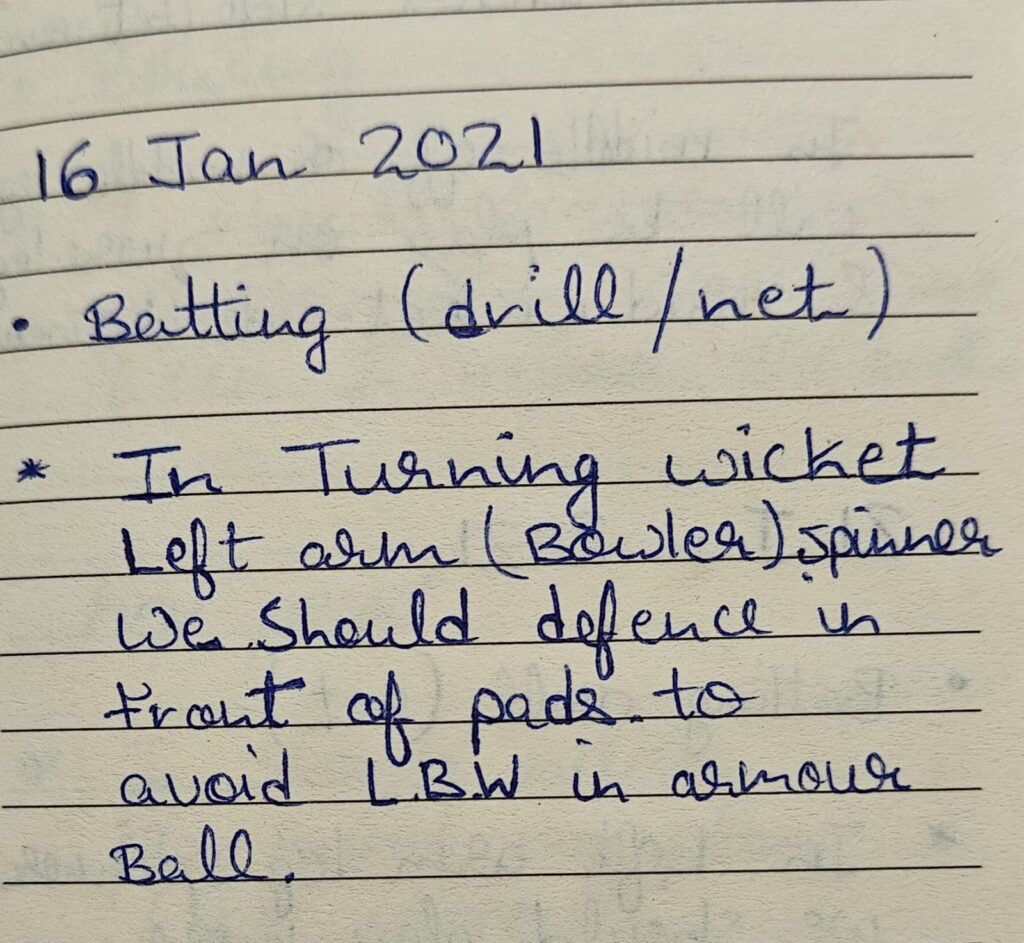 16 Jan 2021
• Batting (drill/net)
* In Turning wicket
Left arm (Bowler) spinner
We Should defence in
front of pads. to
avoid L.B.W in armour
Ball.